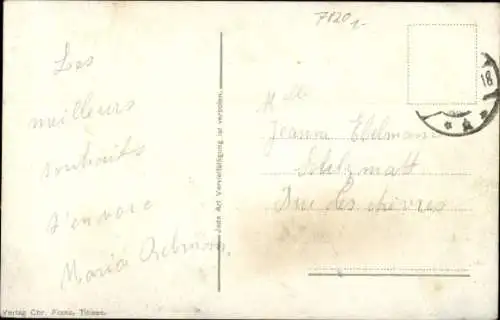 7820
Les
meilleurs
souhaits
d'envoie
Maria
Jede Art Vervielfältigung ist verboten.
Mlle
Jeanne Ebelmann
Sulzmatt
Rue des chèvres
18
Verlag Chr. Franz,